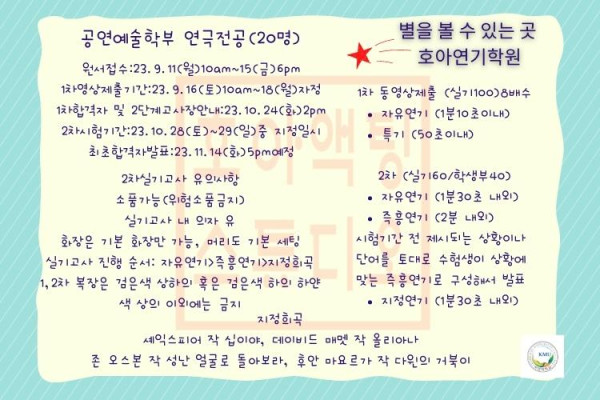 공연예술학부 연극전공(20명)
별을 볼 수 있는 곳
호아연기학원
원서접수:23.9.11(월)10am~15(금)6pm
1차영상제출기간:23.9.16(토)10am~18(월)자정
1차합격자 및 2단계고사장안내:23.10.24(화)2pm
2차시험기간:23.10.28(토)~29(일)중 지정일시
최초합격자발표:23.11.14(화)5pm예정
1차 동영상제출 (실기100)8배수
• 자유연기 (1분10초이내)
• 특기 (50초이내)
2차실기고사 유의사항
소품가능(위험소품금지)
실기고사 내 의자 유
화장은 기본 화장만 가능, 머리도 기본 세팅
실기고사 진행 순서: 자유연기>즉흥연기>지정희곡
1,2차 복장은 검은색 상하의 혹은 검은색 하의 하얀
색 상의 이외에는 금지
2차 (실기60/학생부40)
• 자유연기 (1분30초 내외)
• 즉흥연기 (2분 내외)
시험기간 전 제시되는 상황이나
단어를 토대로 수험생이 상황에
맞는 즉흥연기로 구성해서 발표
• 지정연기 (1분30초 내외)
지정희곡
셰익스피어 작 십이야, 데이비드 매멧 작 올리아나
존 오스본 작 성난 얼굴로 돌아보라, 후안 마요르가 작 다윈의 거북이
호아액팅
스튜디오
KMU